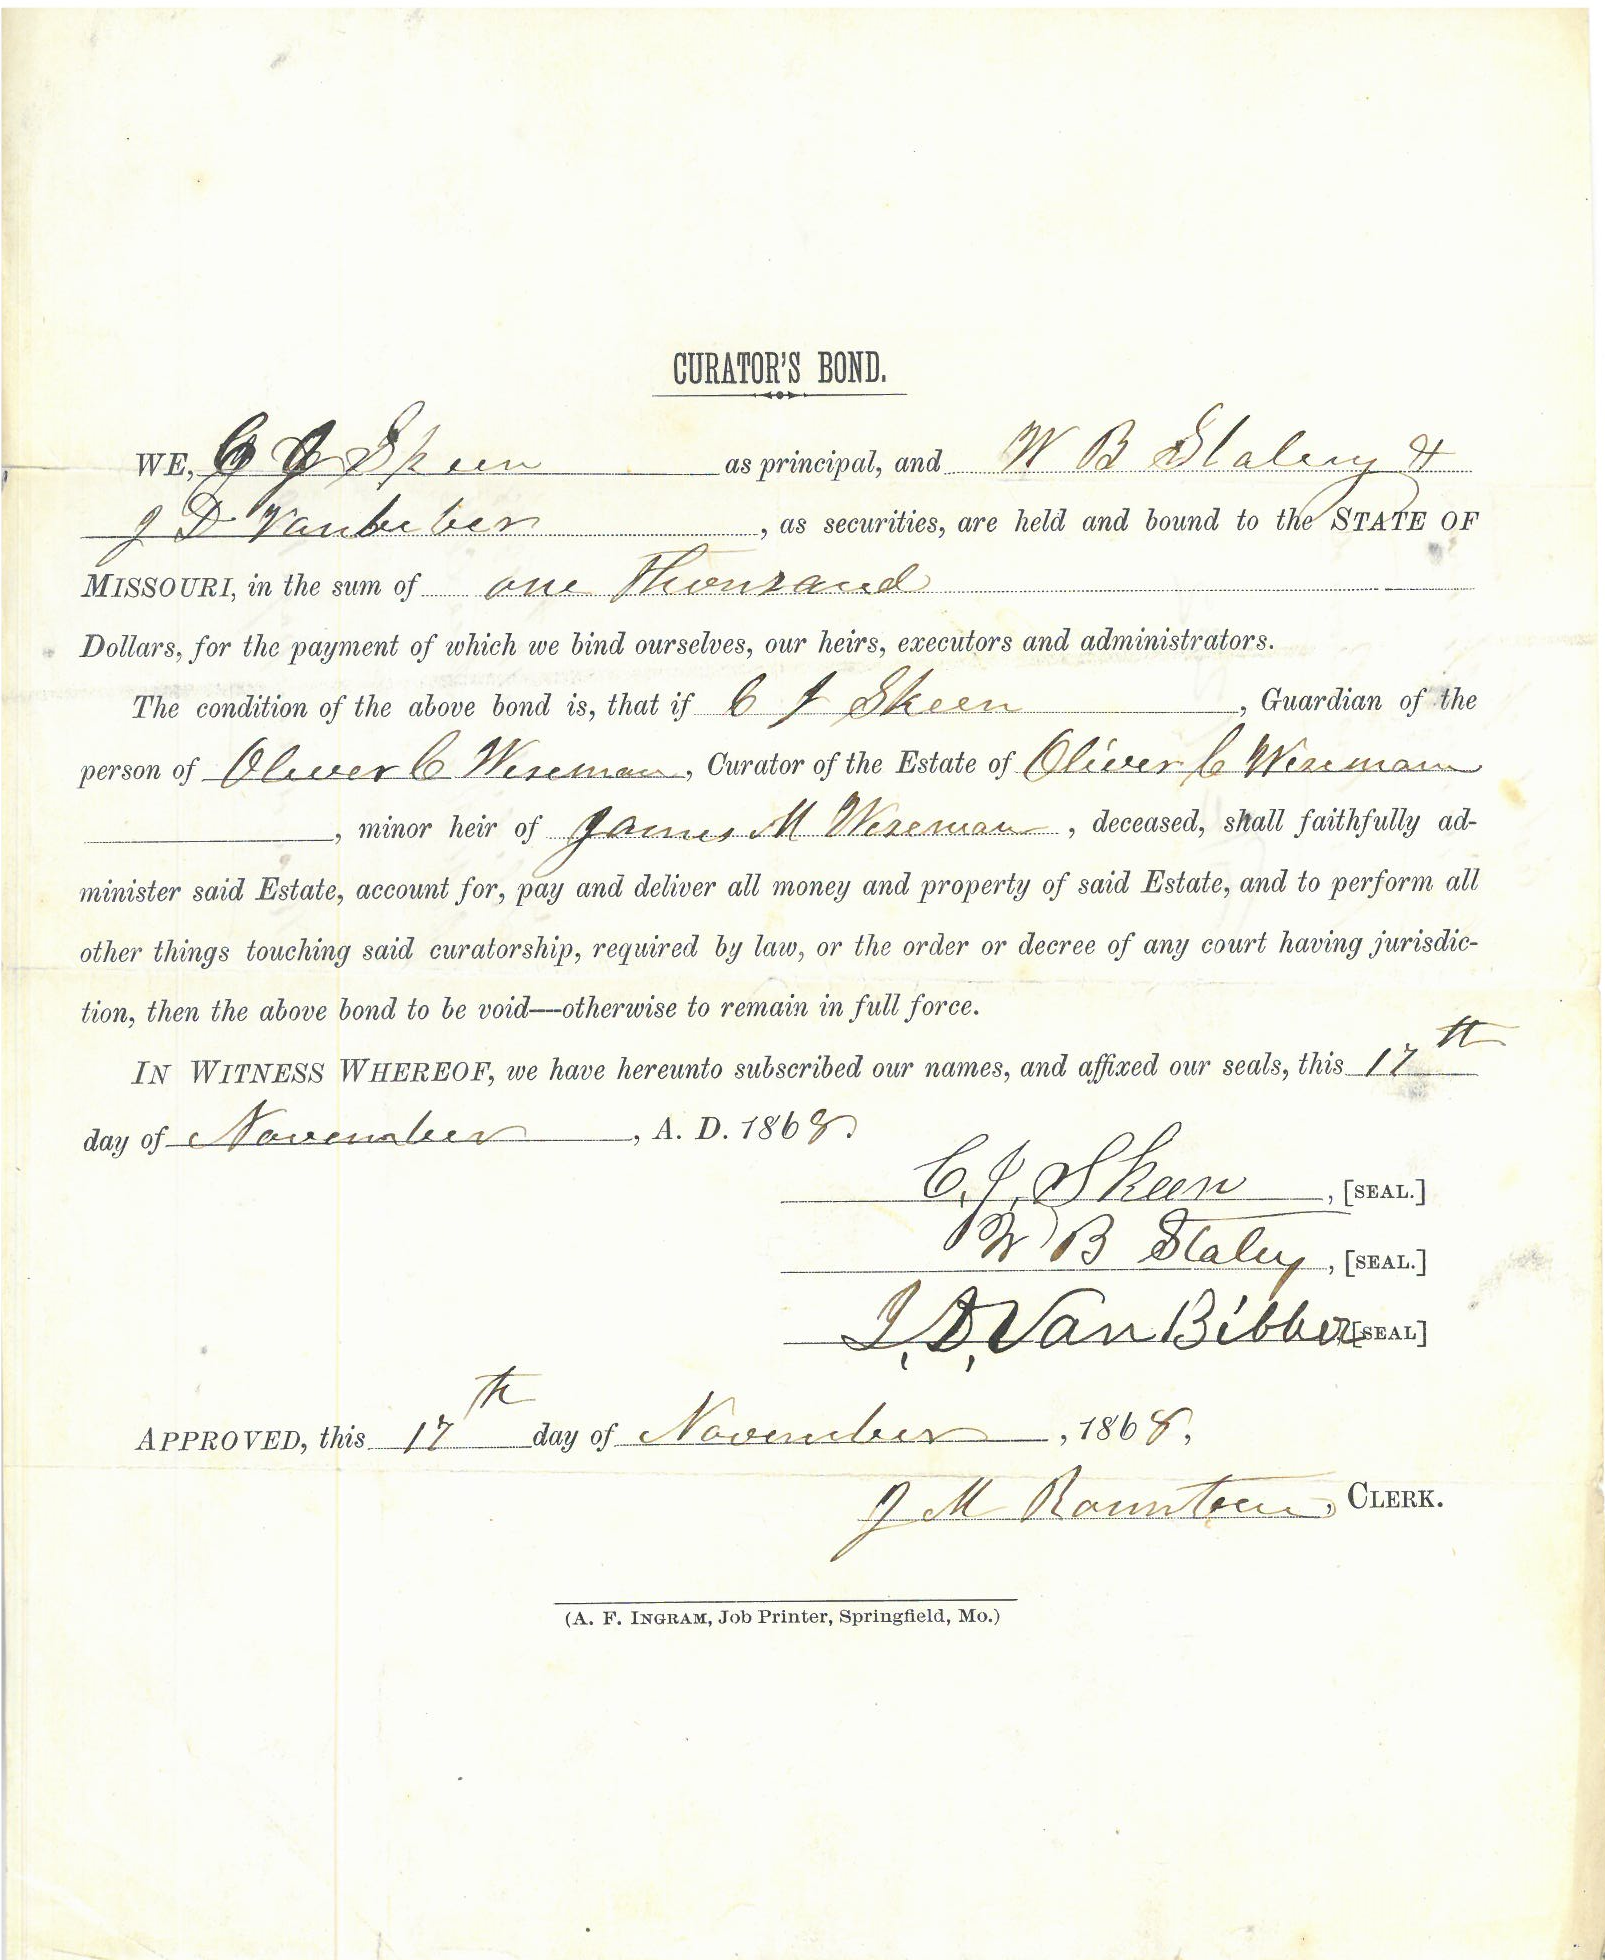 CURATOR'S BOND.
WE, C J Skeen as principal, and W B Staley &
J D Vanbeber, as securities, are held and bound to the STATE OF
MISSOURI, in the sum of one Thousand
Dollars, for the payment of which we bind ourselves, our heirs, executors and administrators.
The condition of the above bond is, that if C J Skeen, Guardian of the
person of Oliver C Wiseman, Curator of the Estate of Oliver C Wiseman
, minor heir of James M Wiseman, deceased, shall faithfully ad-
minister said Estate, account for, pay and deliver all money and property of said Estate, and to perform all
other things touching said curatorship, required by law, or the order or decree of any court having jurisdic-
tion, then the above bond to be void—otherwise to remain in full force.
IN WITNESS WHEREOF, we have hereunto subscribed our names, and affixed our seals, this 17th
day of November, A. D. 1868.
C. J. Skeen, [SEAL.]
W B Staley, [SEAL.]
J. D. Van Bibber [SEAL]
APPROVED, this 17th day of November, 1868,
J M Rountree, CLERK.
(A. F. INGRAM, Job Printer, Springfield, Mo.)